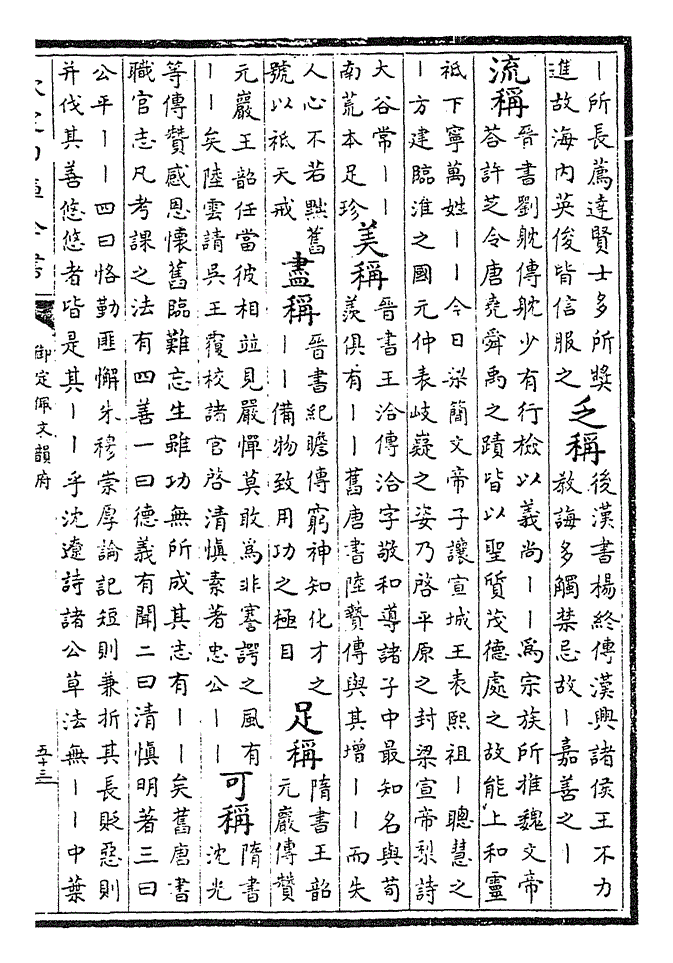 ｜所長薦達賢士多所獎
進故海内英俊皆信服之
乏稱
後漢書楊終傳漢興諸侯王不力
教誨多觸禁忌故｜嘉善之｜
流稱
晉書劉躭傳躭少有行檢以義尚｜｜爲宗族所推魏文帝
答許芝令唐堯舜禹之蹟皆以聖質茂德處之故能上和靈
祗下寧萬姓｜｜今日梁簡文帝子讓宣城王表熙祖｜聰慧之
｜方建臨淮之國元仲表岐嶷之姿乃啓平原之封梁宣帝梨詩
大谷常｜｜
南荒本足珍
美稱
晉書王洽傳洽字敬和導諸子中最知名與荀
羨俱有｜｜舊唐書陸贄傳與其增｜｜而失
人心不若黜舊
號以祗天戒
盡稱
晉書紀瞻傳窮神知化才之
｜｜備物致用功之極目
足稱
隋書王韶
元巖傳贊
元巖王韶任當彼相竝見嚴憚莫敢爲非謇諤之風有
｜｜矣陸雲請吳王覆校諸官啓清慎素著忠公｜｜
可稱
隋書
沈光
等傳贊感恩懷舊臨難忘生雖功無所成其志有｜｜矣舊唐書
職官志凡考課之法有四善一曰德義有聞二曰清慎明著三曰
公平｜｜四曰恪勤匪懈朱穆崇厚論記短則兼折其長貶惡則
并伐其善悠悠者皆是其｜｜乎沈遼詩諸公草法無｜｜中葉
欽定四庫全書
御定佩文韻府
五十三